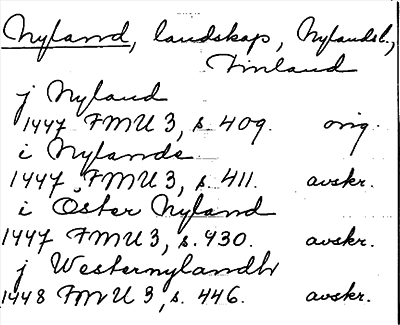 Nyland, landskap, Nylandsl.,
Finland
j Nyland
1447 FMU 3, s. 409. orig.
i Nylande
1447 FMU 3, s. 411. avskr.
i Öster Nyland
1447 FMU 3, s. 430. avskr.
j Westernylandh
1448 FMU 3, s. 446. avskr.